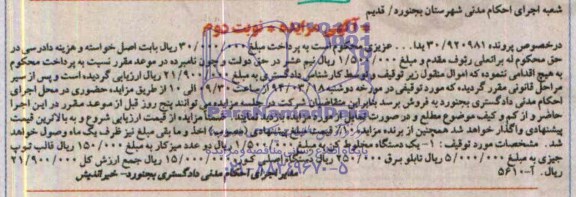 شعبه اجرای احکام مدنی شهرستان بجنورد/ قدیم
آگهی مزایده - نوبت دوم
درخصوص پرونده ۳۰/۹۲۰۹۸۱ یدا... عزیزی محکوم است به پرداخت مبلغ ۳۰/۰۰۰/۰۰۰ ریال بابت اصل خواسته و هزینه دادرسی در
حق محکوم له براتعلی رئوف مقدم و مبلغ ۱/۵۰۰/۰۰۰ ریال نیم عشر در حق دولت و چون نامبرده در موعد مقرر نسبت به پرداخت محکوم
به هیچ اقدامی ننموده که اموال منقول زیر توقیف و توسط کارشناس دادگستری به مبلغ ۲۱/۹۰۰/۰۰۰ ریال ارزیابی گردیده است و پس از سیر
مراحل قانونی مقرر گردیده که مورد توقیفی در مورخه دوشنبه ۹۴/۰۳/۱۸ از ساعت ۰۹/۳۰ الی ۱۰ از طریق مزایده حضوری در محل اجرای
احکام مدنی دادگستری بجنورد به فروش برسد بنابراین متقاضیان شرکت در جلسه مزایده می توانند پنج روز قبل از موعد مقرر در این اجرا
حاضر و از کم و کیف موضوع مطلع و در صورت مزایده از قیمت ارزیابی شروع و به بالاترین قیمت
پیشنهادی واگذار خواهد شد همچنین از برنده مزایده ۱۰٪ قیمت پیشنهادی اخذ و ما بقی مبلغ نیز ظرف یک ماه وصول خواهد
شد. مشخصات مورد توقیف: ۱- یک دستگاه مخلوط کن به مبلغ ۱/۵۰۰/۰۰۰ ریال دو عدد میز کار به مبلغ ۱۵۰/۰۰۰ ریال قالب توپ
جیزی به مبلغ ۵/۰۰۰/۰۰۰ ریال تابلو برق ۲۵۰/۰۰۰ ریال دستگاه اصلی کوره ۱۵/۰۰۰/۰۰۰ ریال جمع ارزش کل ۲۱/۹۰۰/۰۰۰
ریال. آ-۵۶۱۰ مدیر اجرای احکام مدنی دادگستری بجنورد- خیراندیش
ParsNamadData
پایگاه اطلاع رسانی مناقصه و مزایده
۰۲۱-۸۸۳۴۹۶۷۰-۵